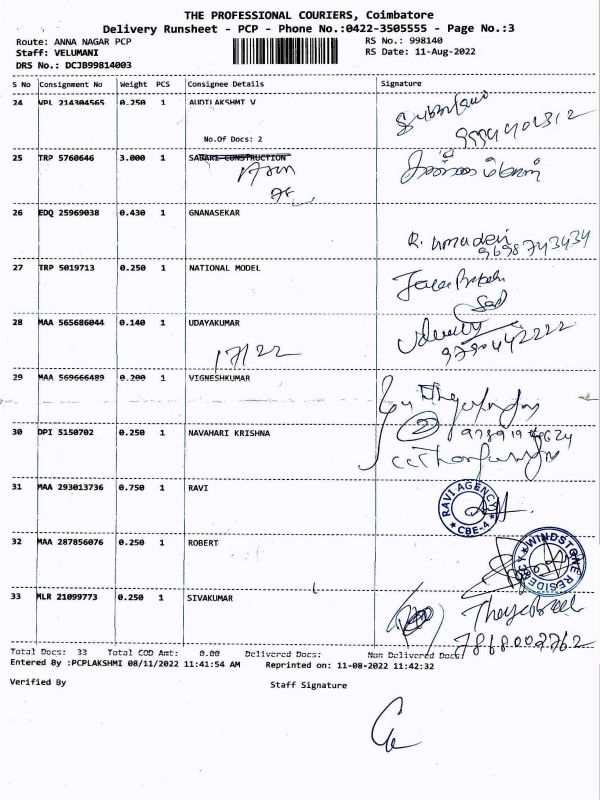 THE PROFESSIONAL COURIERS, Coimbatore
Delivery Runsheet - PCP - Phone No.:0422-3505555 - Page No.:3
Route: ANNA NAGAR PCP
RS No.: 998140
Staff: VELUMANI
RS Date: 11-Aug-2022
DRS No.: DCJB99814003
S No Consignment No Weight PCS Consignee Details Signature
24 VPL 214304565 0.250 1 AUDILAKSHMI V
No.Of Docs: 2
25 TRP 5760646 3.000 1 SABARI CONSTRUCTION
26 EDQ 25969038 0.430 1 GNANASEKAR
R. Umadevi
9698743434
27 TRP 5019713 0.250 1 NATIONAL MODEL
28 MAA 565686044 0.140 1 UDAYAKUMAR
17/22
9790442222
29 MAA 569666489 0.200 1 VIGNESHKUMAR
30 DPI 5150702 0.250 1 NAVAHARI KRISHNA
31 MAA 293013736 0.750 1 RAVI
RAVI AGENCY
CBE-4
32 MAA 287856076 0.250 1 ROBERT
WINDSTONE RESIDENCY
33 MLR 21099773 0.250 1 SIVAKUMAR
7868002762
Total Docs: 33 Total COD Amt: 0.00 Delivered Docs: Non Delivered Docs:
Entered By :PCPLAKSHMI 08/11/2022 11:41:54 AM Reprinted on: 11-08-2022 11:42:32
Verified By
Staff Signature